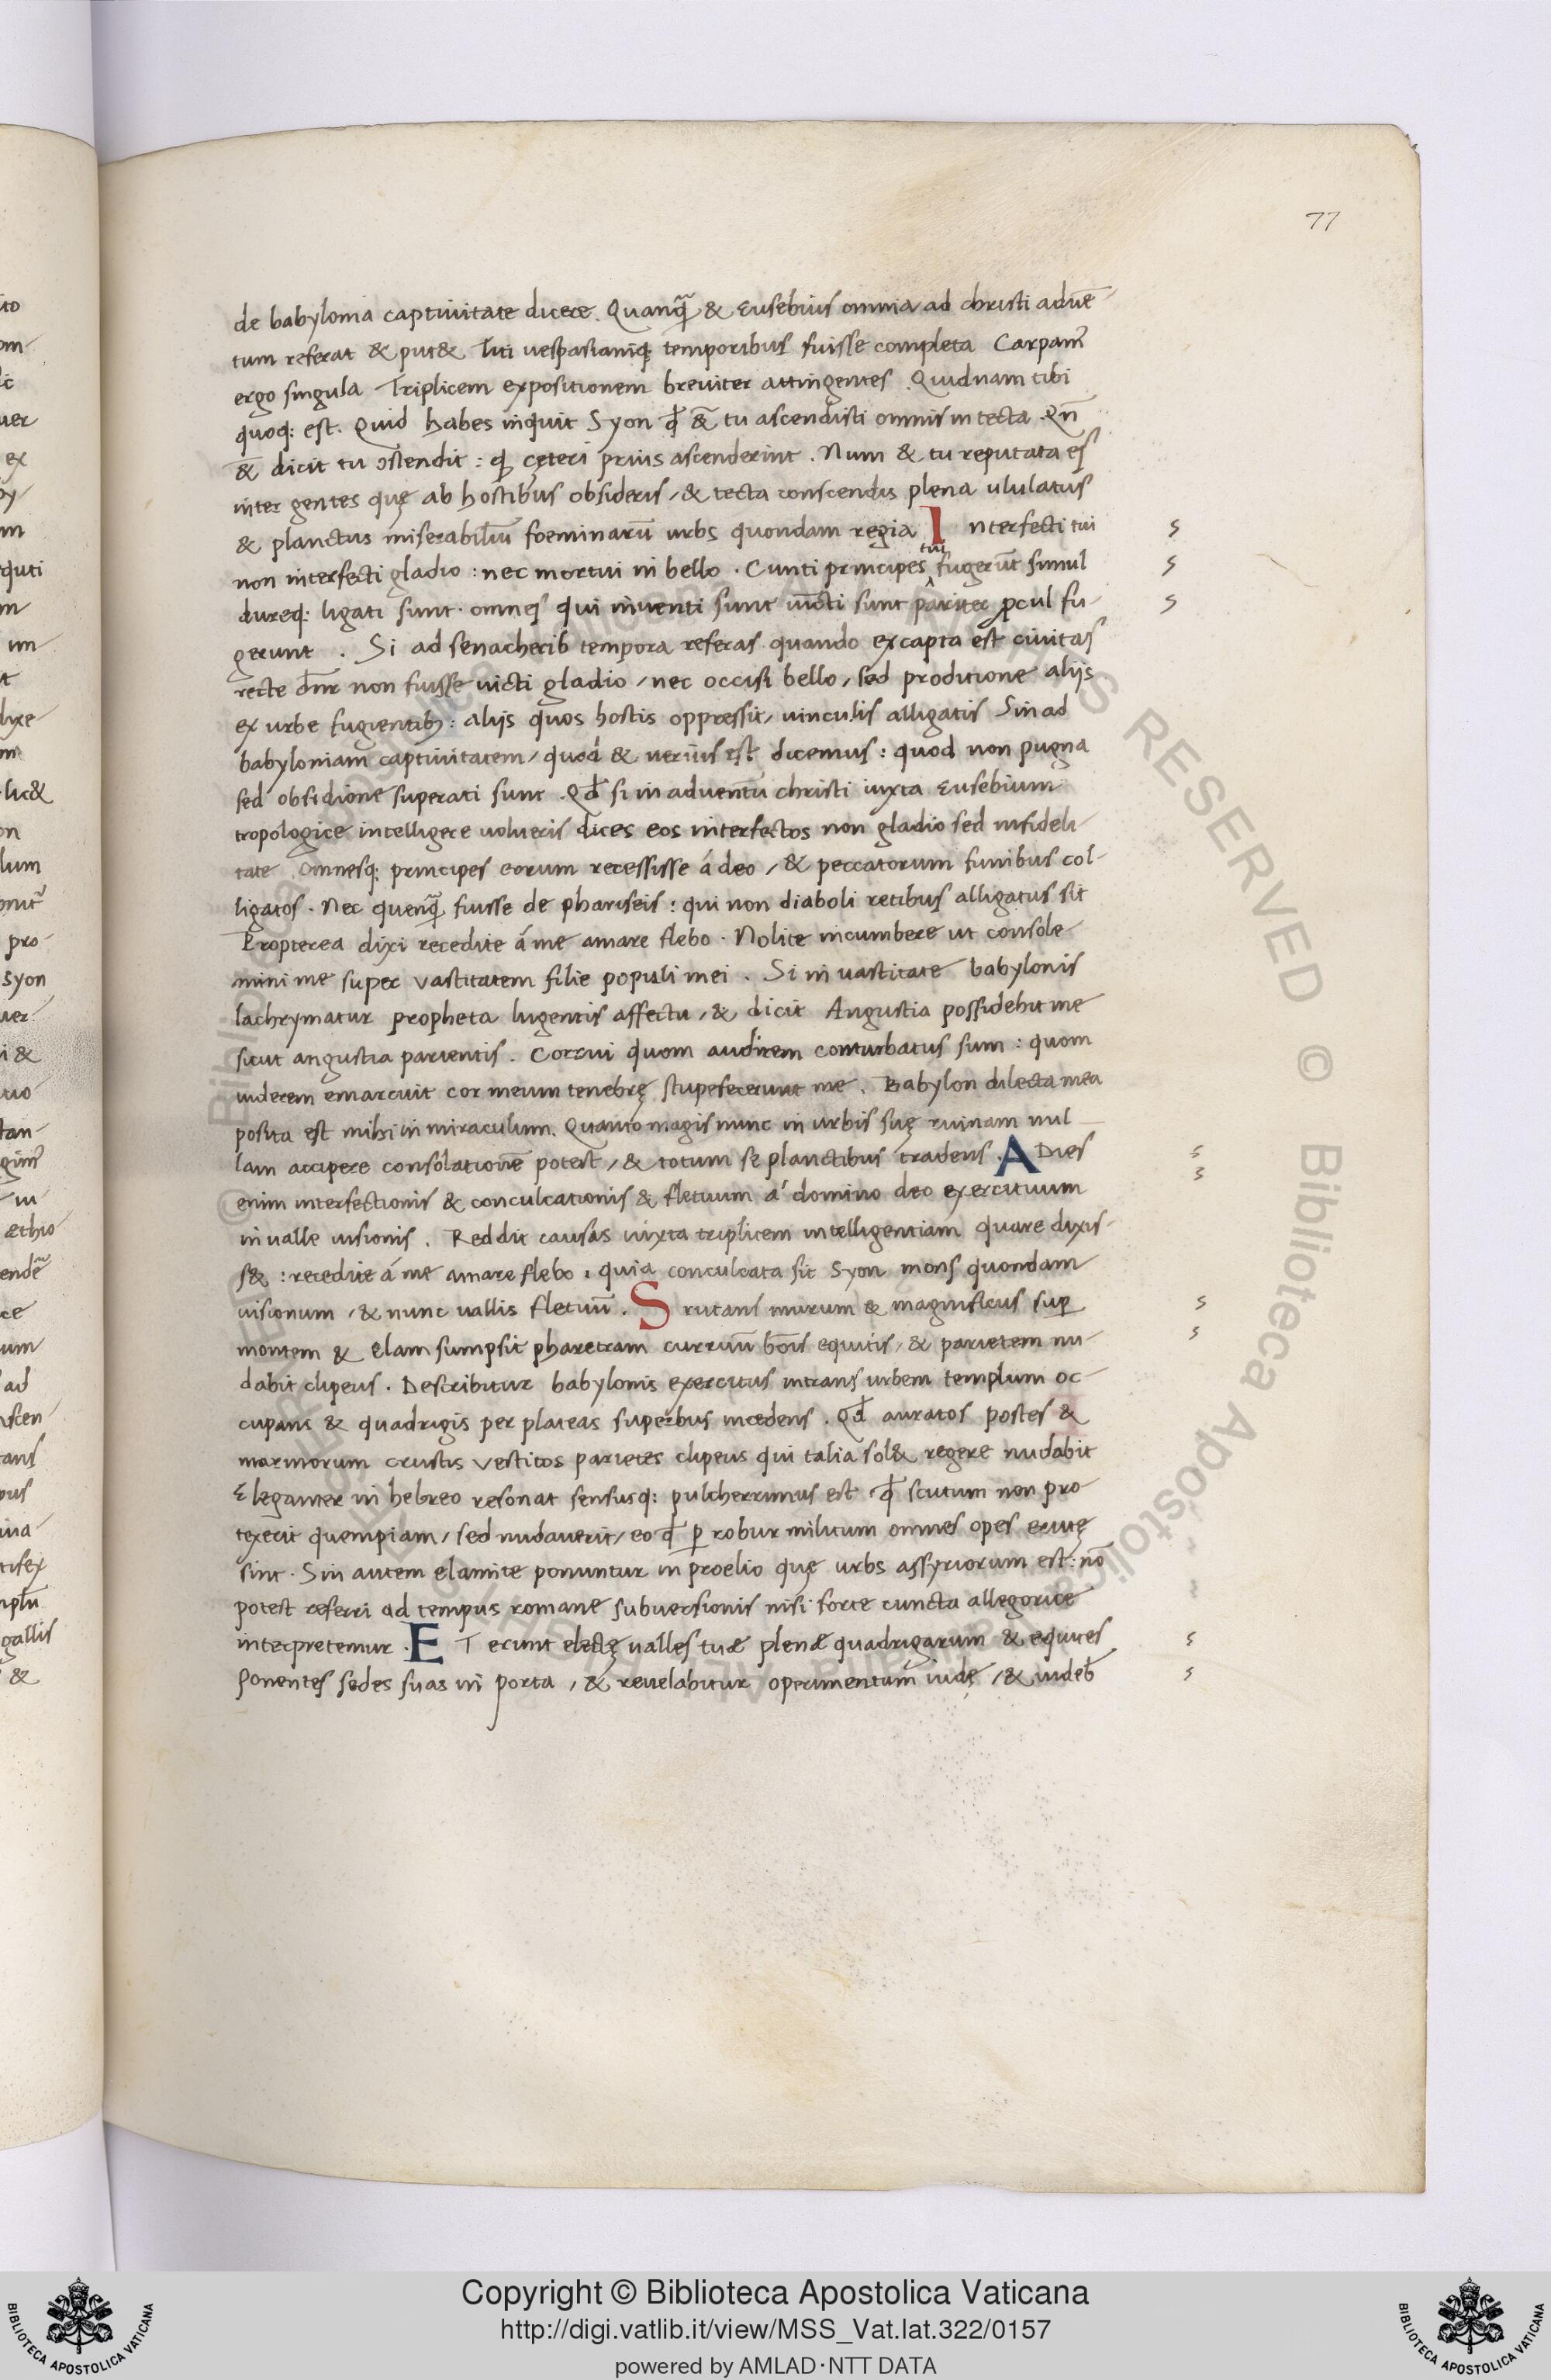 77
de babylonia captiuitate dicere. Quanq̃ & Eusebius omnia ad christi aduē-
tum referat & put& Titi uespasianiq; temporibus fuisse completa Carpam᷒
ergo singula Triplicem expositionem breuiter attingentes. Quidnam tibi
quoq: est. Quid habes inquit Syon ꝙ & tu ascendisti omnis in tecta. Qn̄
& dicit tu ꝯstendit: ꝙ cęteri prius ascenderint. Num & tu reputata es
inter gentes quę ab hostibus obsideris, & tecta conscendis plena ululatus
& planctus miserabiliū foeminarū urbs quondam regia Interfecti tui
non interfecti gladio: nec mortui in bello. Cunti principes tui fugerūt simul
dureq: ligati sunt. omnes qui inuenti sunt uīcti sunt pariter ꝓcul fu-
gerunt. Si ad senacherib tempora referas quando excapta est ciuitas
recte dr̄nr non fuisse uicti gladio, nec occisi bello, sed proditione alijs
ex urbe fugientib;: alijs quos hostis oppressit, uinculis alligatis Sin ad
babyloniam captiuitatem, quod & uerius est, dicemus: quod non pugna
sed obsidione superati sunt. Qđ si in aduentū christi iuxta Eusebium
tropologice intelligere uolueris dices eos interfectos non gladio sed infideli-
tate. Omnesq: principes eorum recessisse á deo, & peccatorum funibus col-
ligatos. Nec quenq̃ fuisse de phariseis: qui non diaboli retibus alligatus sit
Propterea dixi recedite á me amare flebo. Nolite incumbere ut console-
mini me super vastitatem filie populi mei. Si in uastitate babylonis
lachrymatur propheta lugentis affectu, & dicit Angustia possidebit me
sicut angustia parientis. Corrui quom audirem conturbatus sum: quom
uiderem emarcuit cor meum tenebrę stupefecerunt me. Babylon dilecta mea
posita est mihi in miraculum. Quanto magis nunc in urbis suę ruinam nul-
lam accipere consolationē potest, & totum se planctibus tradens. A Dies
enim interfectionis & conculcationis & fletuum á domino deo exercituum
in ualle uisionis. Reddit causas iuxta triplicem intelligentiam quare dixis-
s&: recedite á me amare flebo: quia conculcata sit Syon mons quondam
uisionum, & nunc uallis fletuū. S rutans murum & magnificus suꝑ
montem & Elam sumpsit pharetram curruū hōis equitis, & parietem nu-
dabit clipeus. Describitur babylonis exercitus intrans urbem templum oc-
cupans & quadrigis per plateas superbus incedens. Qđ auratos postes &
marmorum crustis vestitos parietes clipeus qui talia sol& regere nudabit
Eleganter in hebreo resonat sensusq: pulcherrimus est ꝙ scutum non pro-
texerit quempiam, sed nudauerit, eo ꝙ ꝑ robur militum omnes opes erutę
sint. Sin autem elamite ponuntur in proelio quę urbs assyriorum est: nō
potest referri ad tempus romane subuersionis nisi forte cuncta allegorice
interpretemur. E T erunt electę ualles tuæ plenæ quadrigarum & equites
ponentes sedes suas in porta, & reuelabitur operimentum iudę, & uideb̄
Copyright © Biblioteca Apostolica Vaticana
http://digi.vatlib.it/view/MSS_Vat.lat.322/0157
powered by AMLAD·NTT DATA